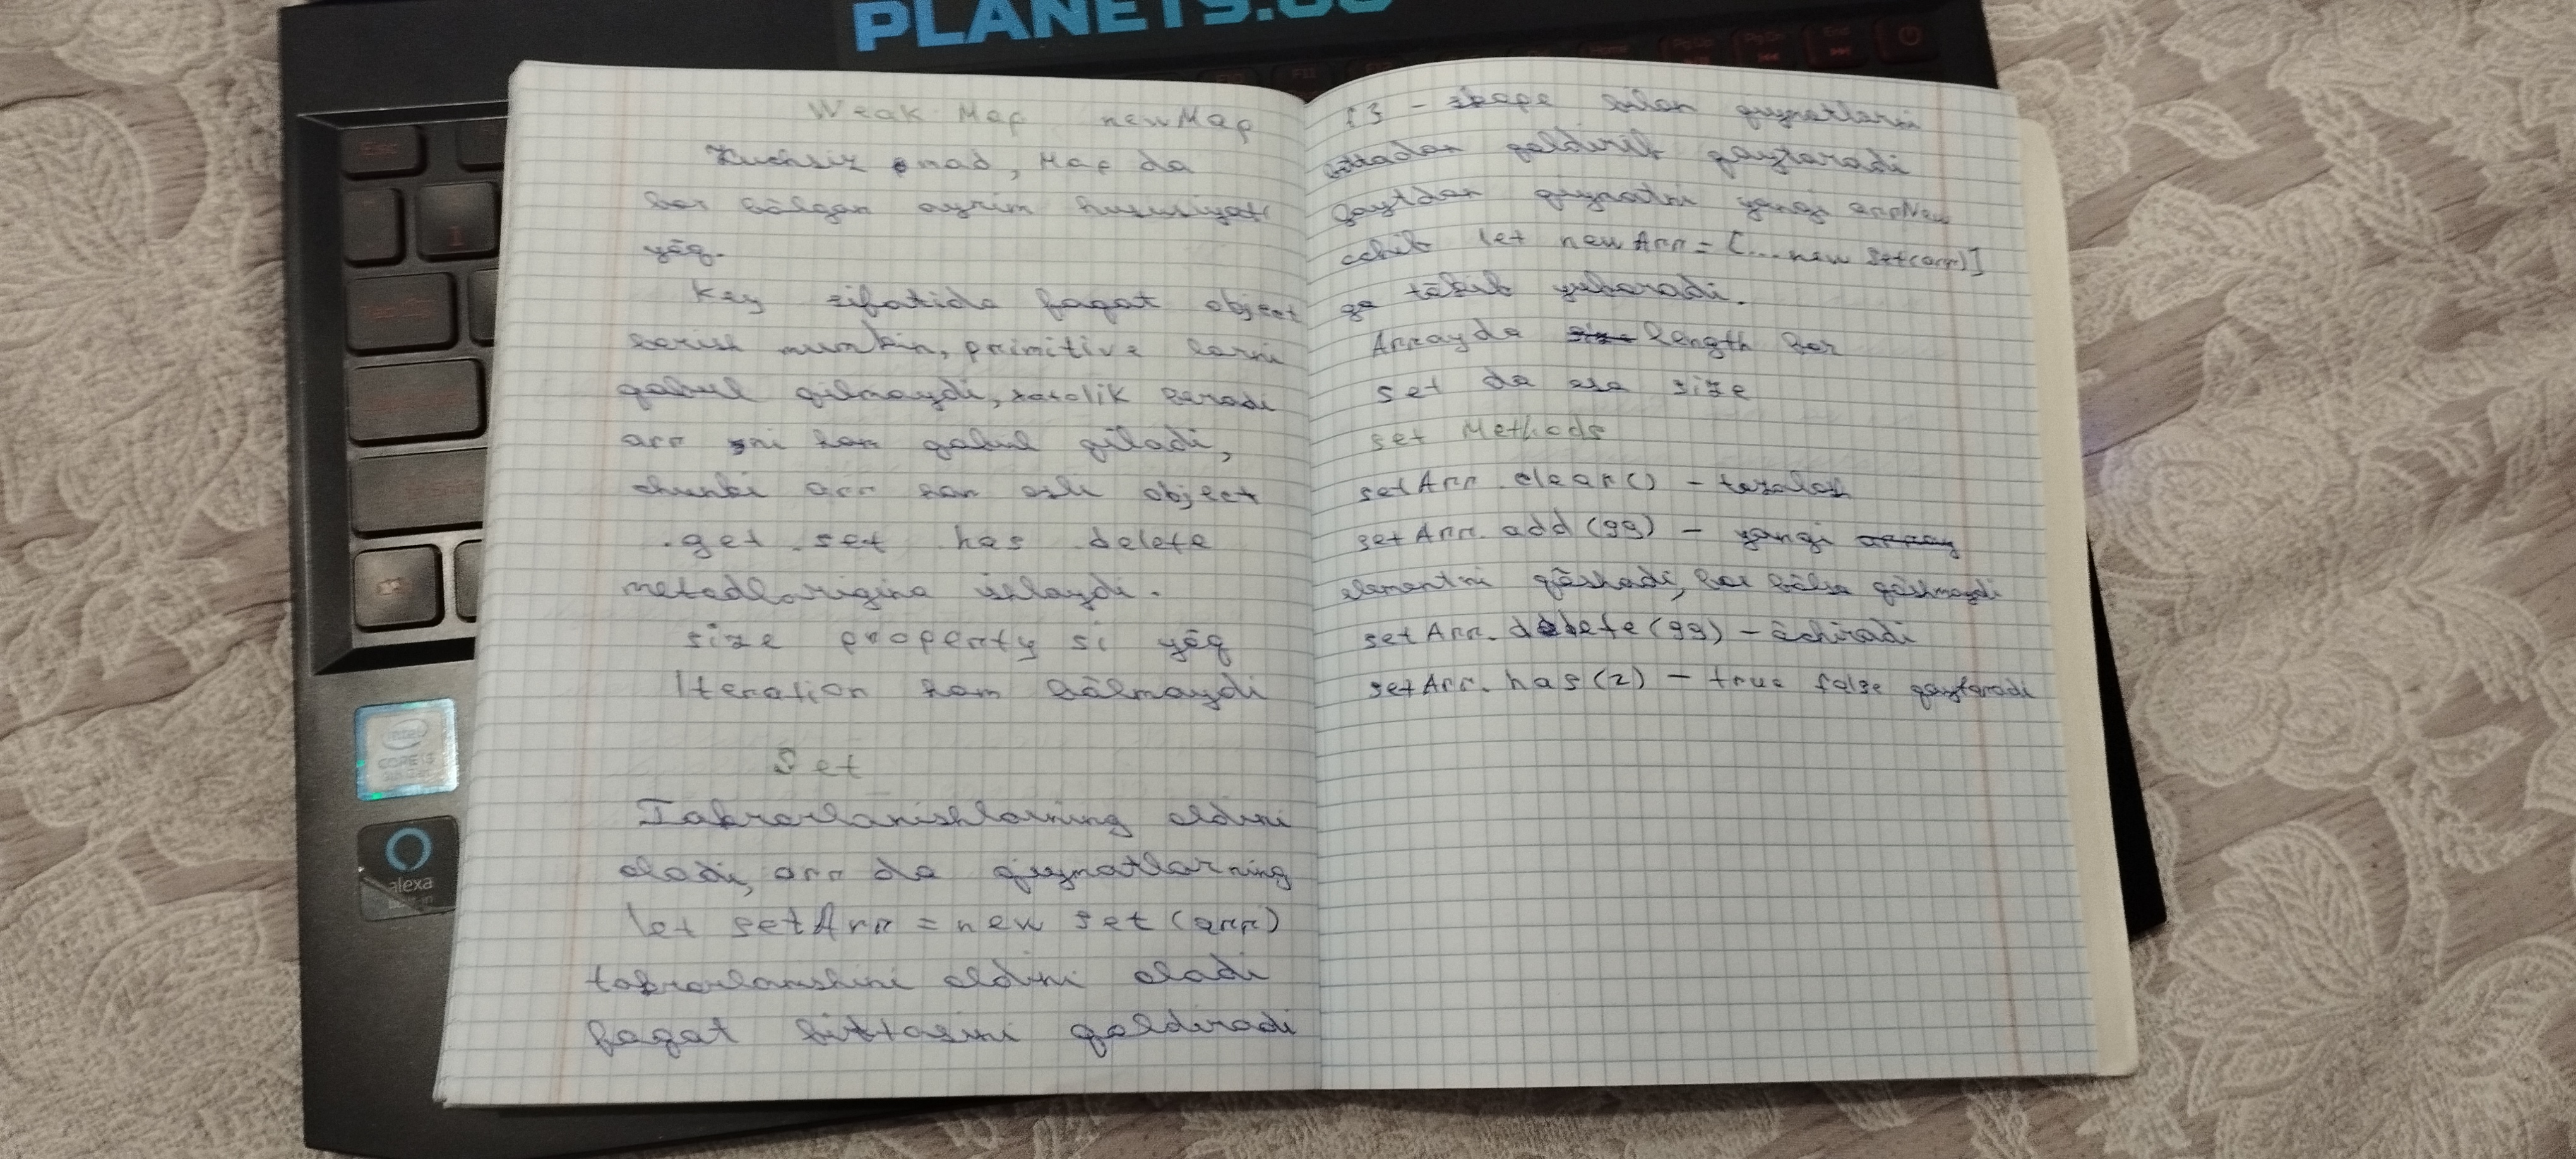 PLANETS.
Esc
Home
PgUp
PgDn
End
F11
Tab
1
intel
CORE i5
alexa
built-in
Weak Map newMap
Kuchsiz mad, Map da
bor bōlgan ayrim hususiyati
yōq.
Key sifatida faqat object
berish mumkin, primitive larni
qabul qilmaydi, xatolik beradi
arr ni ham qabul qiladi,
chunki arr ham asli object
.get .set .has .delete
metodlarigina ishlaydi.
size property si yōq
Iteration ham bōlmaydi
Set
Takrorlanishlarning oldini
oladi, arr da qiymatlarning
let setArr = new set (arr)
takrorlanshini oldini oladi
faqat bittasini qoldiradi
{ } - skape bilan qiymatlarni
bittadan qoldirib qaytaradi
qaytdan qiymatni yangi arrNew
ochib let newArr = [...new Set(arr)]
ga tōkib yuboradi.
Arrayda size length bor
set da esa size
set Methods
setArr.clear() - tozalash
setArr.add(99) - yangi array
elementni qōshadi, bor bōlsa qōshmaydi
setArr.delete(99) - ōchiradi
setArr.has(2) - true false qaytaradi